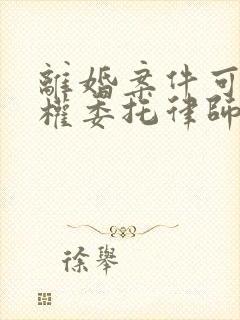 離婚案件可
權委托律師
徐舉